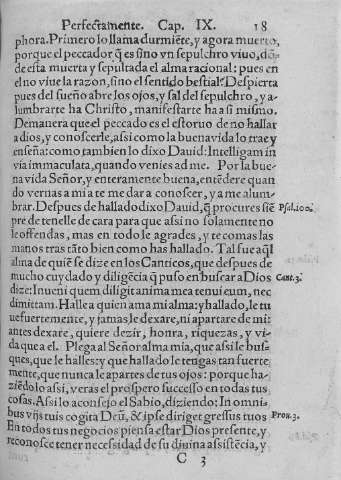 Perfectamente. Cap. IX. 18
phora. Primero lo llama durmiẽte, y agora muerto,
porque el peccador q̃ es sino vn sepulchro viuo, dõ-
de esta muerta y sepultada el alma racional: pues en
el no viue la razon, sino el sentido bestial. Despierta
pues del sueño abre los ojos, y sal del sepulchro, y a-
lumbrarte ha Christo, manifestarte ha a si mismo.
Demanera que el peccado es el estoruo de no hallar
a dios, y conoscerle, assi como la buena vida lo trae y
enseña: como tambien lo dixo Dauid: Intelligam in
via immaculata, quando venies ad me. Por la bue-
na vida Señor, y enteramente buena, entẽdere quan
do vernas a mi a te me dar a conoscer, y a me alum-
brar. Despues de hallado dixo Dauid, q̃ procures siẽ Psal. 100.
pre de tenelle de cara para que assi no solamente no
le offendas, mas en todo le agrades, y te comas las
manos tras tãto bien como has hallado. Tal fue aq̃l
alma de quiẽ se dize en los Canticos, que despues de
mucho cuydado y diligẽcia q̃ puso en buscar a Dios Cant. 3.
dize: Inueni quem diligit anima mea tenui eum, nec
dimittam. Halle a quien ama mi alma: y hallado, le tu
ue fuertemente, y jamas le dexare, ni apartare de mi:
antes dexare, quiere dezir, honra, riquezas, y vi-
da que a el. Plega al Señor alma mia, que assi le bus-
ques, que le halles: y que hallado le tengas tan fuerte
mente, que nunca le apartes de tus ojos: porque ha-
ziẽdo lo assi, veras el prospero successo en todas tus
cosas. Assi lo aconsejo el Sabio, diziendo: In omni-
bus vijs tuis cogita Deũ, & ipse diriget gressus tuos Prou. 3.
En todos tus negocios piensa estar Dios presente, y
reconosce tener necessidad de su diuina assistẽcia, y
C 3